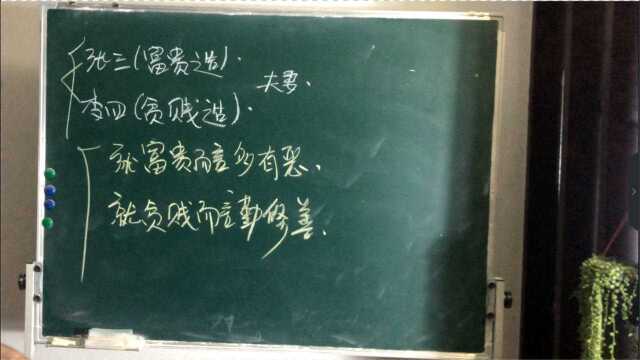 张三(富贵造).
夫妻.
李四(贫贱造).
就富贵而言多有恶.
就贫贱而言勤修善.